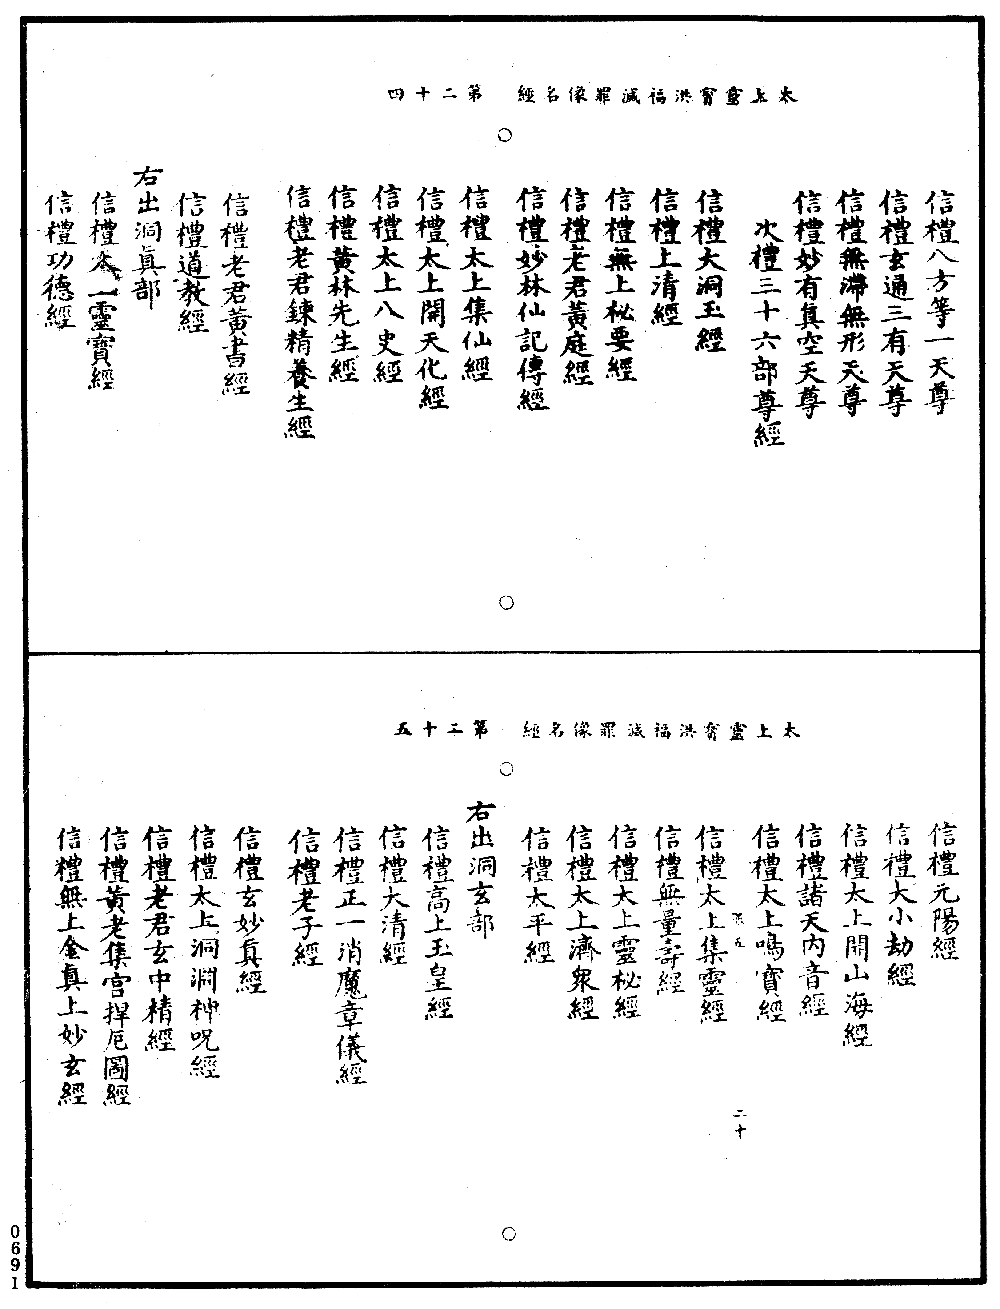 太上靈寳洪福滅罪像名經　第二十四
信禮八方等一天尊
信禮玄通三有天尊
信禮無滯無形天尊
信禮妙有真空天尊
次禮三十六部尊經
信禮大洞玉經
信禮上清經
信禮無上秘要經
信禮老君黃庭經
信禮妙林仙記傳經
信禮太上集仙經
信禮太上開天化經
信禮太上八史經
信禮黃林先生經
信禮老君鍊精養生經
信禮老君黃書經
信禮道教經
右出洞真部
信禮太一靈寶經
信禮功德經
太上靈寳洪福滅罪像名經　第二十五
信禮元陽經
信禮大小劫經
信禮太上開山海經
信禮諸天內音經
信禮太上鳴寶經
張五
二十
信禮太上集靈經
信禮無量壽經
信禮太上靈秘經
信禮太上濟衆經
信禮太平經
右出洞玄部
信禮高上玉皇經
信禮大清經
信禮正一消魔章儀經
信禮老子經
信禮玄妙真經
信禮太上洞淵神呪經
信禮老君玄中精經
信禮黃老集宮捍厄圖經
信禮無上金真上妙玄經
0691